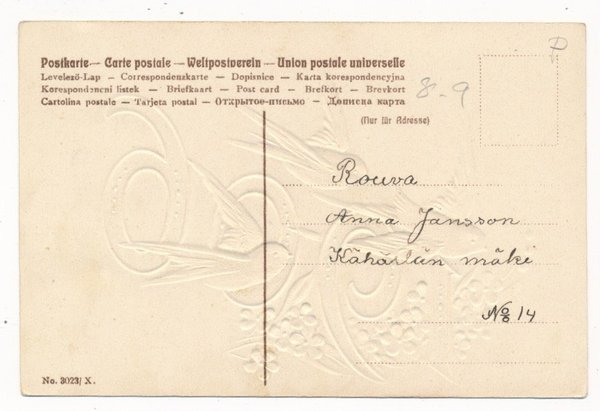 Postkarte — Carte postale — Weltpostverein — Union postale universelle
Levelező-Lap — Correspondenzkarte — Dopisnice — Karta korespondencyjna
Korespondencni listek — Briefkaart — Post card — Brefkort — Brevkort
Cartolina postale — Tarjeta postal — Открытое-письмо — Дописна карта
(Nur für Adresse)
8-9
Rouva
Anna Jansson
Kähärlän mäke
No 14
No. 3023/X.